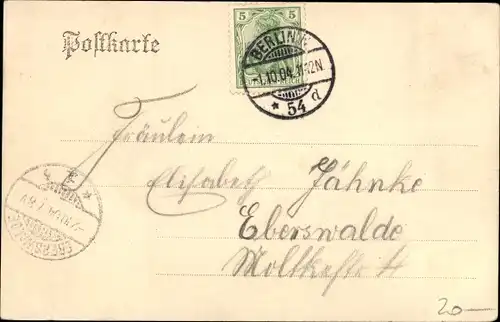 Postkarte
5 5
BERLIN W.
-1.10.04.11-12N.
* 54 d
Fräulein
Elisabeth Jähnke
Eberswalde
Moltkestr 4
EBERSWALDE
20—